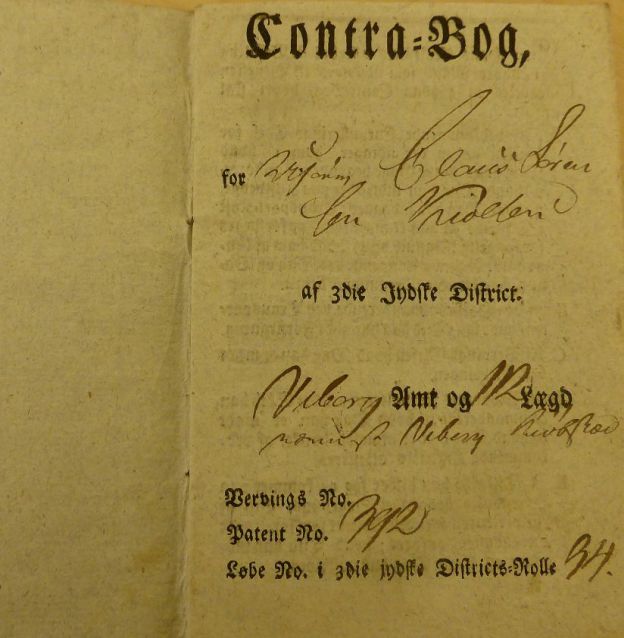 Contra-Bog,
for Claus Søren
sen
af 3die Jydske District.
Viborg Amt og 112 Lægd
Viborg
Vervings No.
Patent No. 392
Løbe No. i 3die jydske Districts-Rolle 34.